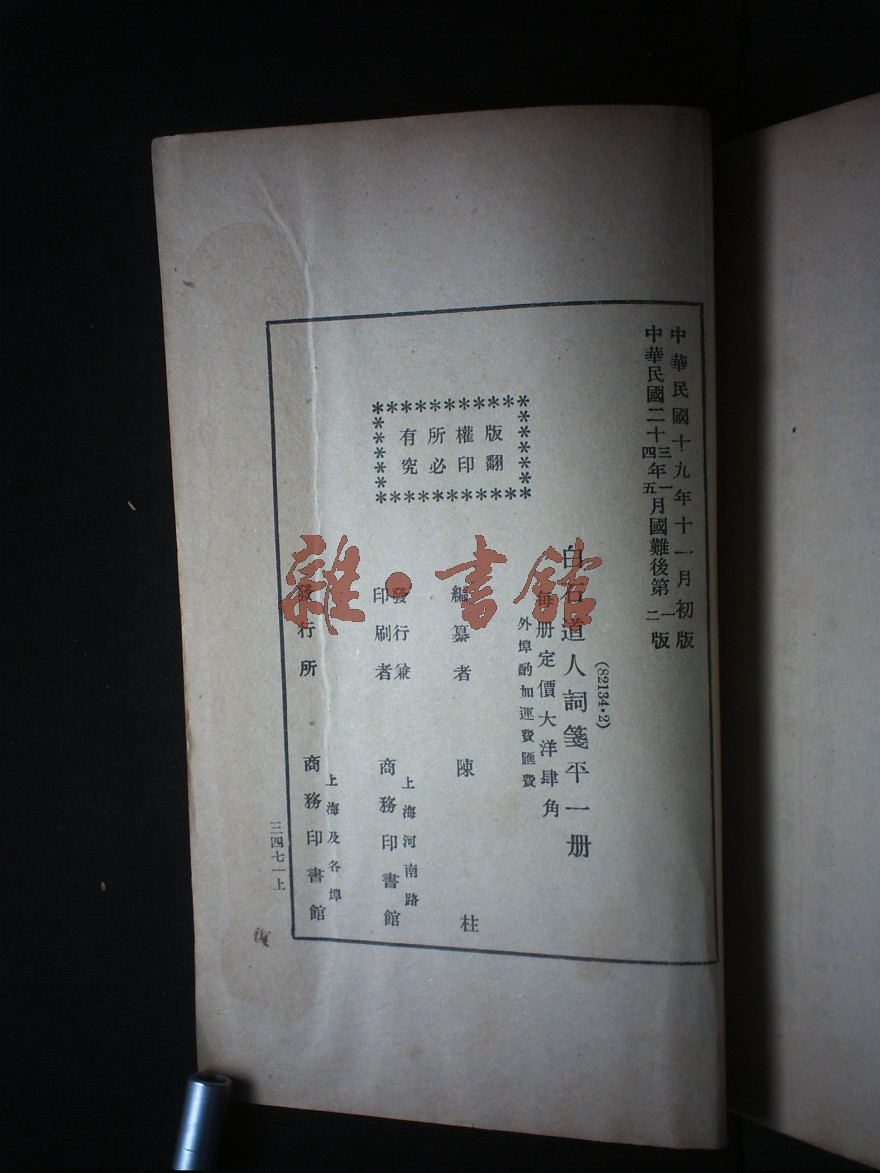 中華民國十九年十一月初版
中華民國二十三四年一五月國難後第一二版
(82134·2)
白石道人詞箋平一册
每册定價大洋肆角
外埠酌加運費匯費
版權所有
翻印必究
編纂者 陳柱
發行兼
印刷者
上海河南路
商務印書館
發行所
上海及各埠
商務印書館
三四七一上
雜·書館